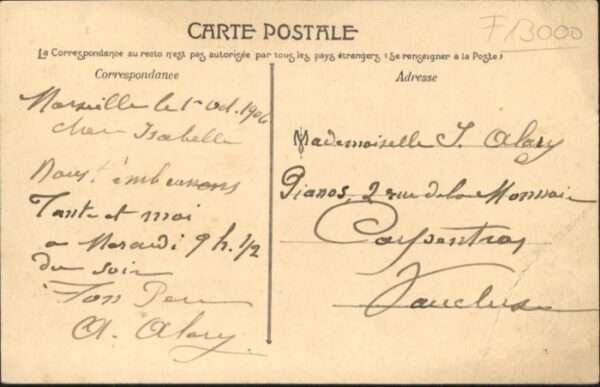 F13000
CARTE POSTALE
La Correspondance au recto n'est pas autorisée par tous les pays étrangers (Se renseigner à la Poste)
Correspondance
Adresse
Marseille le 1er Oct. 1906
chere Isabelle
Nous t'embrassons
Tante et moi
a Mercredi 9 h. 1/2
du soir
Ton Pere
A. Alary
Mademoiselle I. Alary
Pianos, 2 rue de la Monnaie
Carpentras
Vaucluse